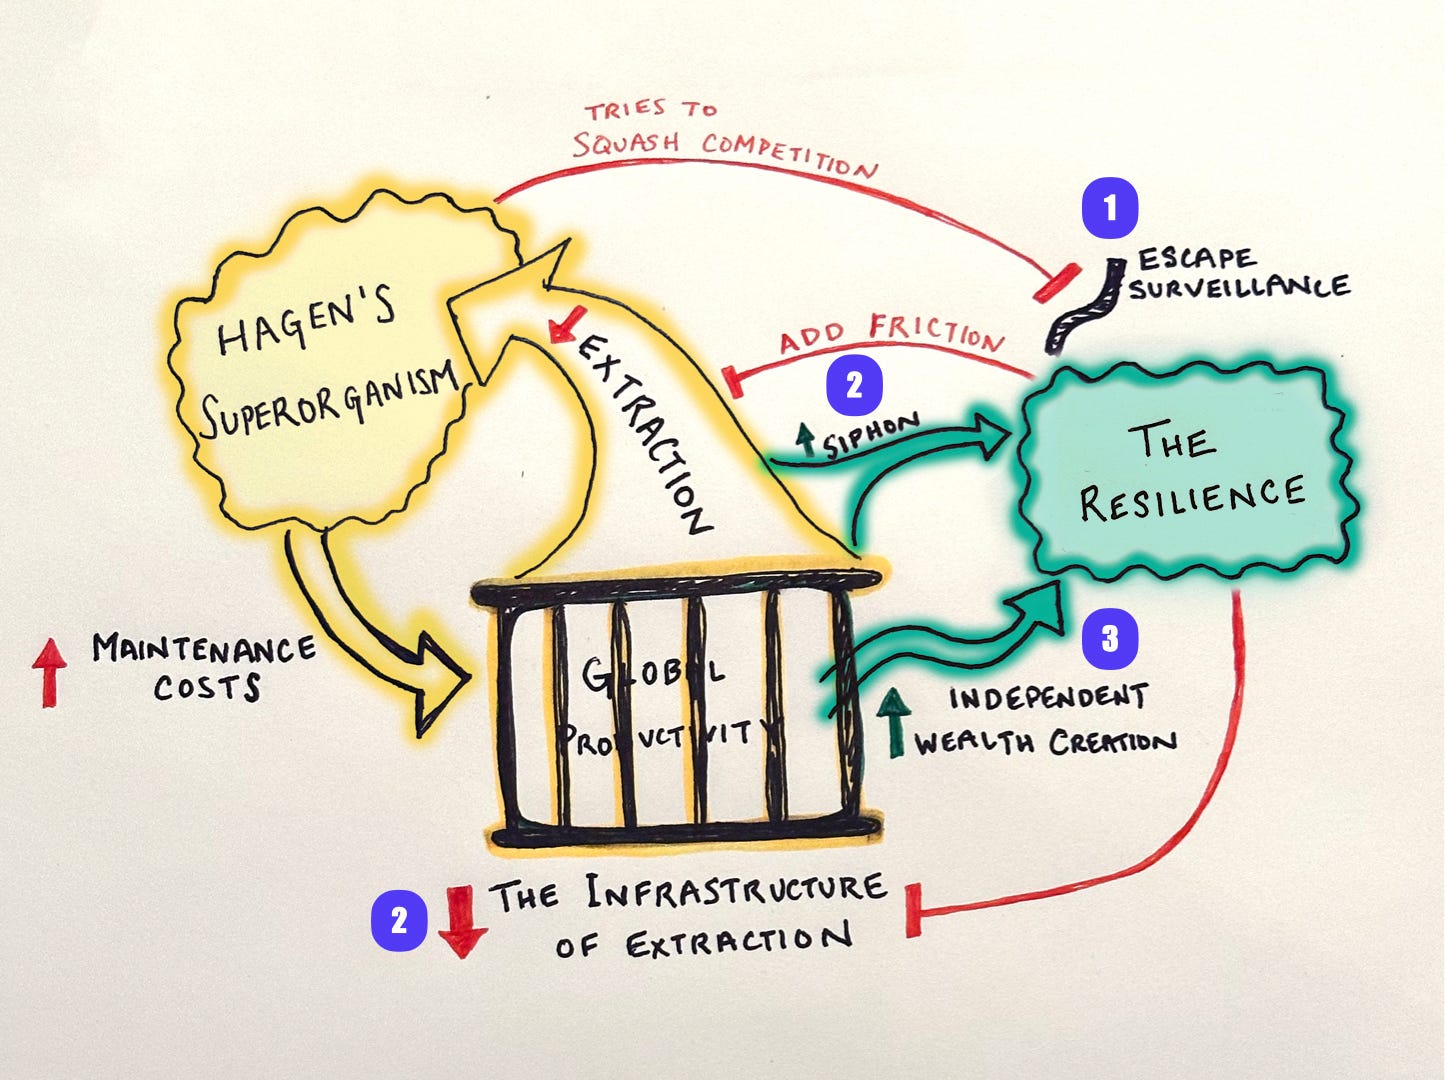 TRIES TO
SQUASH COMPETITION
1
ESCAPE
SURVEILLANCE
HAGEN'S
SUPERORGANISM
EXTRACTION
ADD FRICTION
2
SIPHON
THE
RESILIENCE
MAINTENANCE
COSTS
GLOBAL
PRODUCTIVITY
3
INDEPENDENT
WEALTH CREATION
2
THE INFRASTRUCTURE
OF EXTRACTION